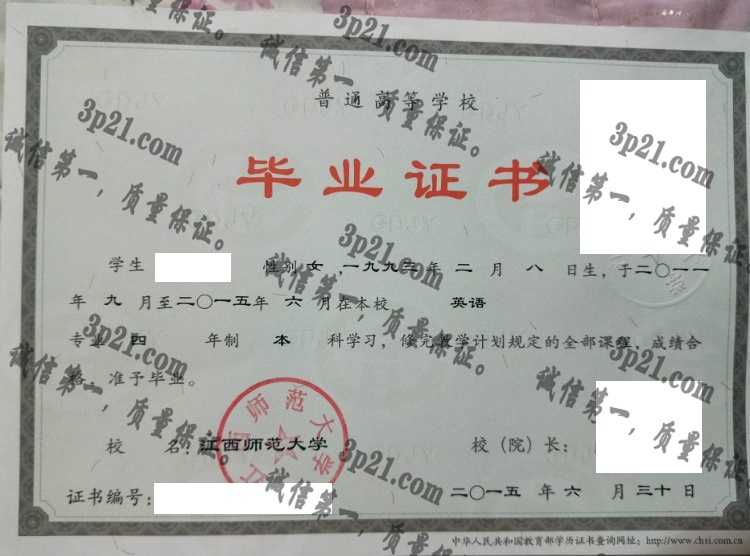 普通高等学校
毕业证书
学生 性别 女 ,一九九三年 二 月 八 日生,于二〇一一
年 九 月至二〇一五年 六 月在本校 英语
专业 四 年制 本 科学习,修完教学计划规定的全部课程,成绩合
格,准予毕业。
校 名:江西师范大学
校(院)长:
证书编号:
二〇一五 年 六 月 三十 日
中华人民共和国教育部学历证书查询网址:http://www.chsi.com.cn
江西师范大学
3p21.com
诚信第一,质量保证。
3p21.com
诚信第一,质量保证。
3p21.com
诚信第一,质量保证。
3p21.com
诚信第一,质量保证。
3p21.com
诚信第一,质量保证。
3p21.com
诚信第一,质量保证。
3p21.com
诚信第一,质量保证。